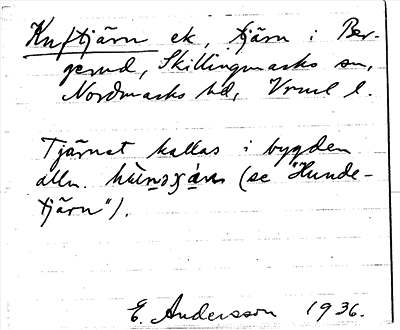 Kuftjärn ek, tjärn i Ber-
gerud, Skillingmarks sn,
Nordmarks hd, Vrml l.
Tjärnet kallas i bygden
allm. (se "Hunde-
tjärn").
E. Andersson 1936.